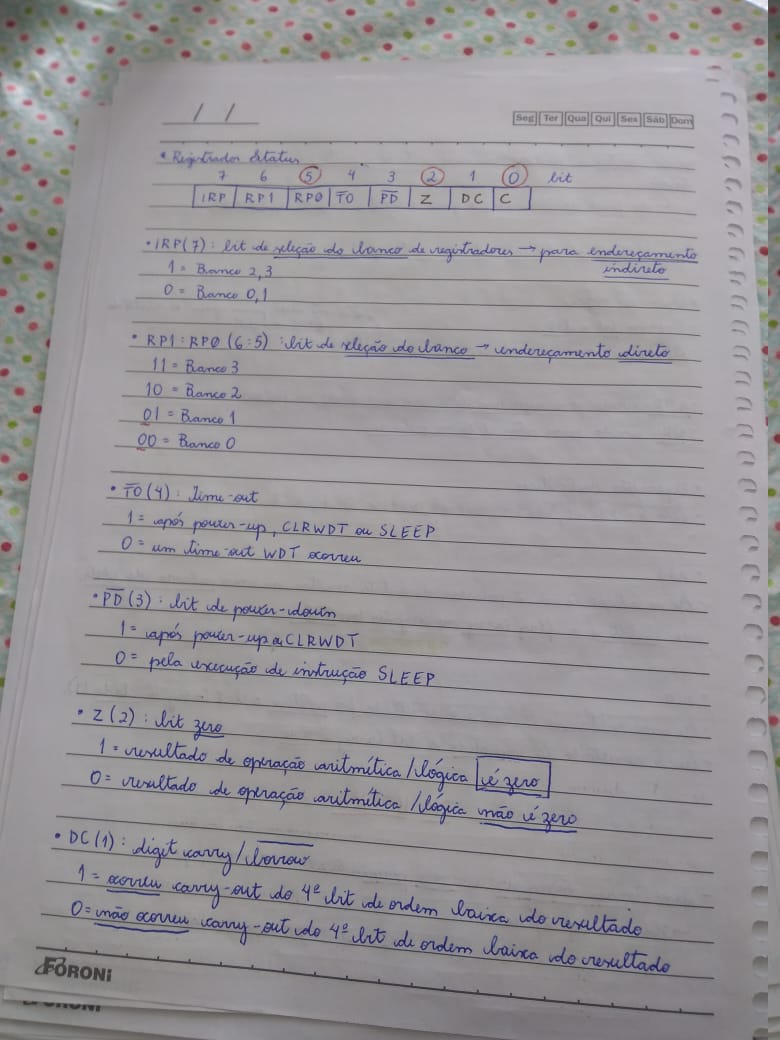 / /
Seg Ter Qua Qui Sex Sáb Dom
• Registrador Status
7 6 5 4 3 2 1 0 bit
IRP RP1 RP0 T̅O̅ P̅D̅ Z DC C
• IRP(7): bit de seleção do banco de registradores → para endereçamento
indireto
1 = Banco 2,3
0 = Banco 0,1
• RP1:RP0 (6:5): bit de seleção do banco → endereçamento direto
11 = Banco 3
10 = Banco 2
01 = Banco 1
00 = Banco 0
• T̅O̅(4): Time-out
1 = após power-up, CLRWDT ou SLEEP
0 = um time-out WDT ocorreu
• P̅D̅(3): bit de power-down
1 = após power-up ou CLRWDT
0 = pela execução de instrução SLEEP
• Z(2): bit zero
1 = resultado de operação aritmítica/lógica é zero
0 = resultado de operação aritmítica/lógica não é zero
• DC(1): digit carry/b̅o̅r̅r̅o̅w̅
1 = ocorreu carry-out do 4º bit de ordem baixa do resultado
0 = não ocorreu carry-out do 4º bit de ordem baixa do resultado
FORONI